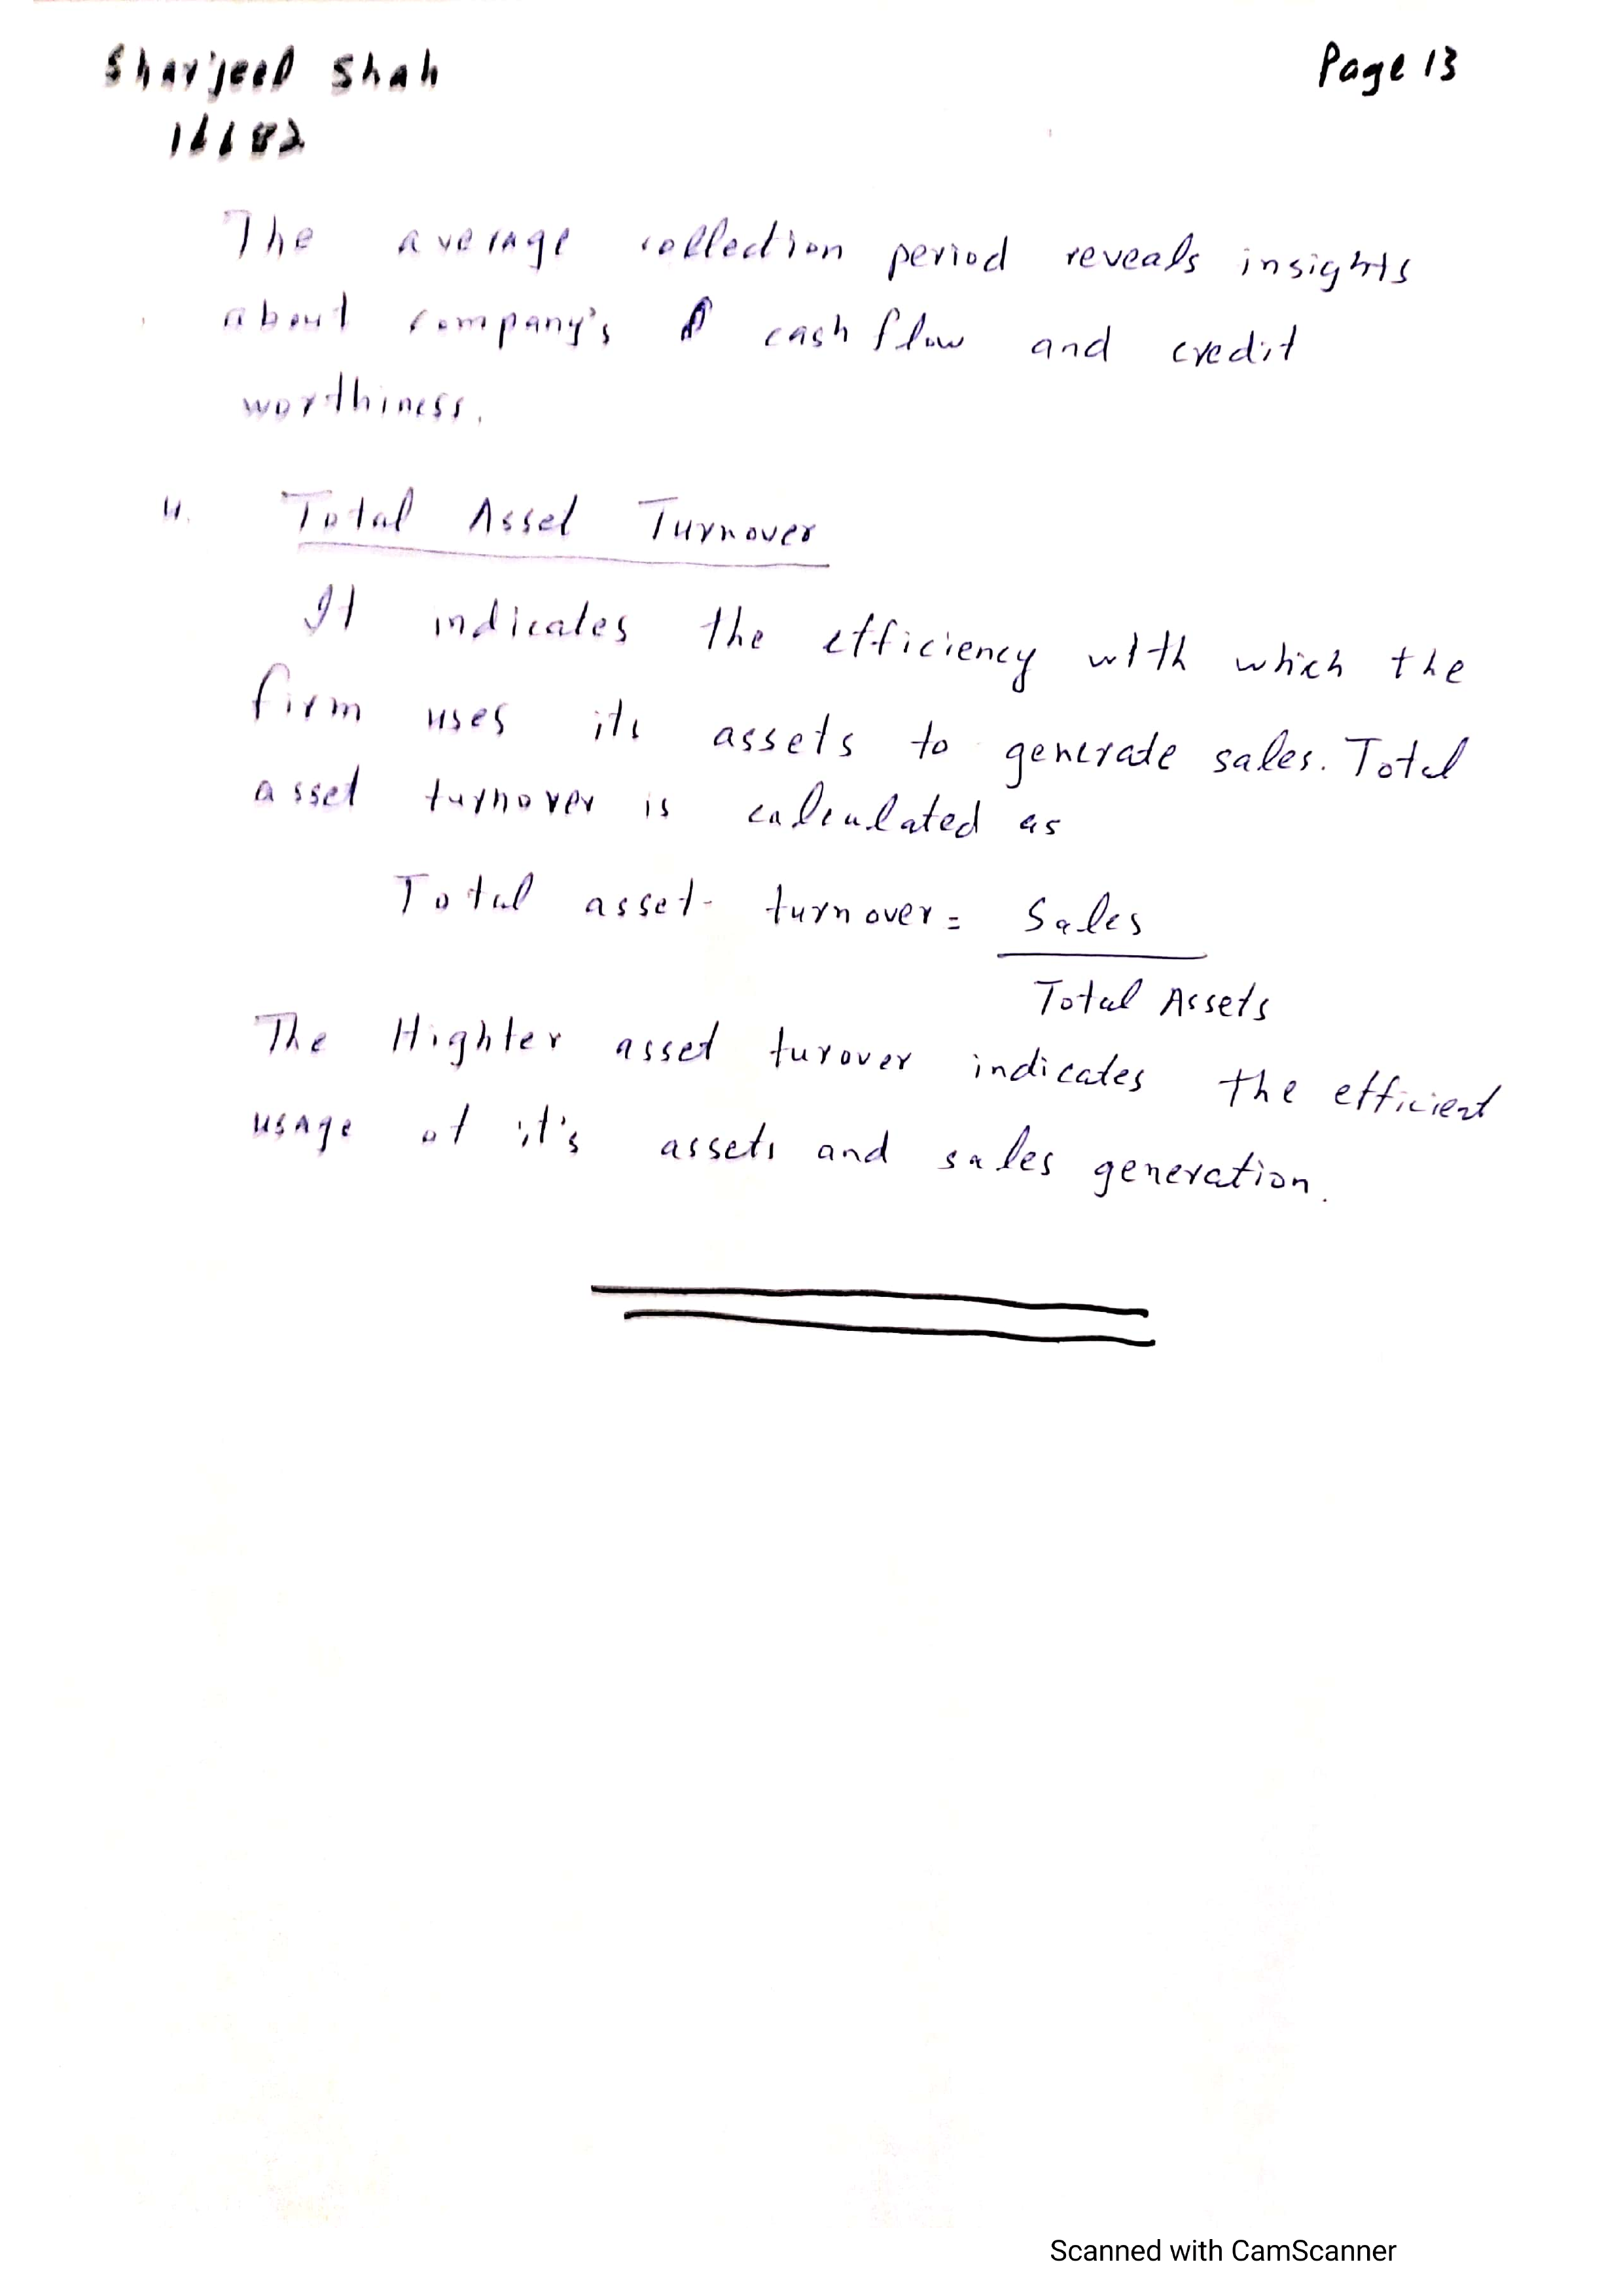 Sharjeel Shah
Page 13
16682
The average collection period reveals insights
about company's cash flow and credit
worthiness.
4. Total Asset Turnover
It indicates the efficiency with which the
firm uses its assets to generate sales. Total
asset turnover is calculated as
Total asset turnover = Sales
Total Assets
The Highter asset turover indicates the efficient
usage of it's assets and sales generation.
Scanned with CamScanner